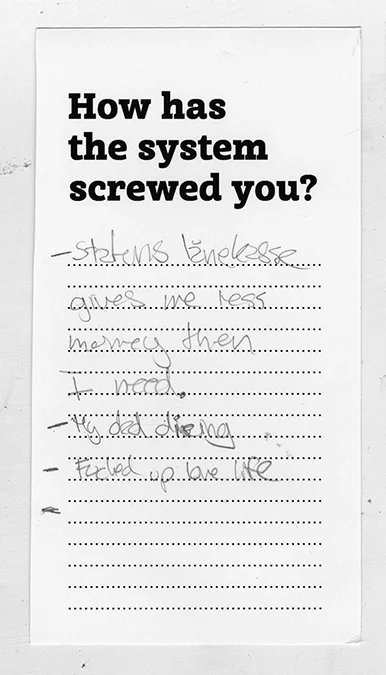 How has
the system
screwed you?
- Statens lånekasse
gives me less
money then
I need.
- My dad dieing
- Fucked up love life
-